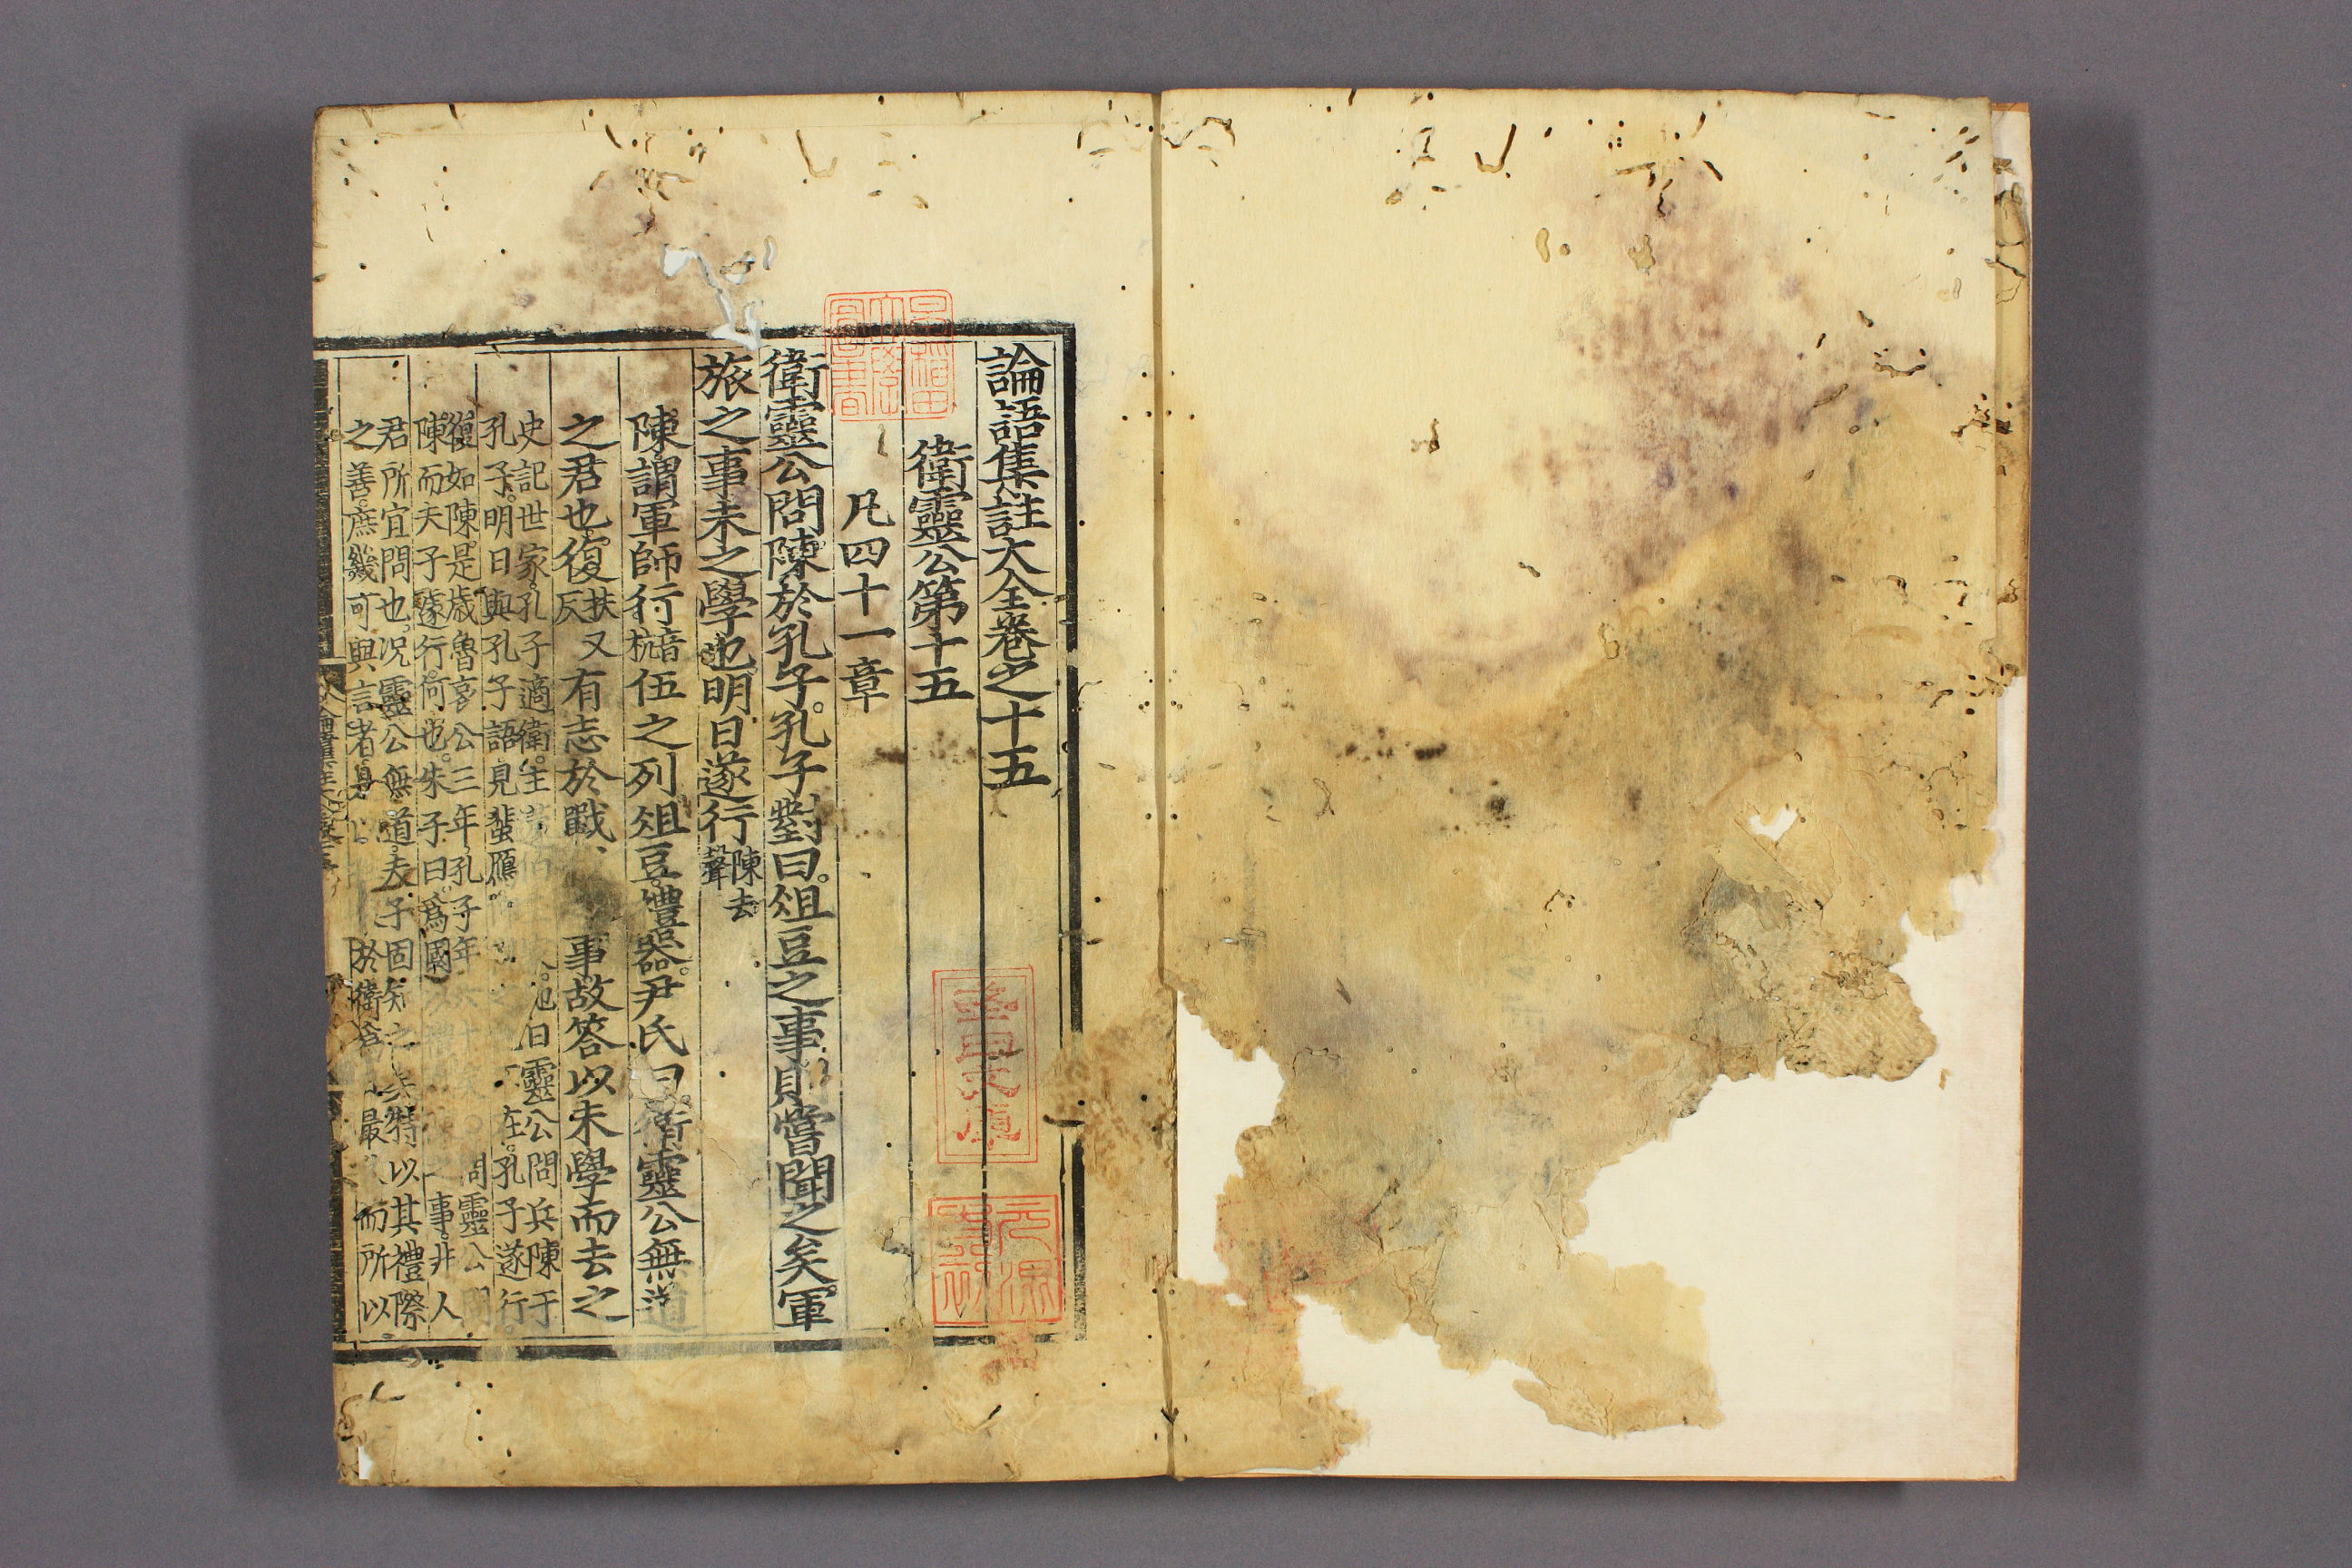 論語集註大全卷之十五
衛靈公第十五
凡四十一章
衛靈公問陳於孔子孔子對曰俎豆之事則嘗聞之矣軍
旅之事未之學也明日遂行陳去
聲
陳謂軍師行杭音
伍之列俎豆禮器尹氏曰衛靈公無道
之君也復扶又
反有志於戰 事故答以未學而去之
史記世家孔子適衛主 他日靈公問兵陳于
孔子明日與孔子語見蜚鴈 在孔子遂行
復如陳是歲魯哀公三年孔子年 問靈公
陳而夫子遽行何也朱子曰爲國 事非人
君所宜問也况靈公無道夫子固知之矣特以其禮際
之善庶幾可與言者 於衛爲 最 而所以
早稻田大學圖書